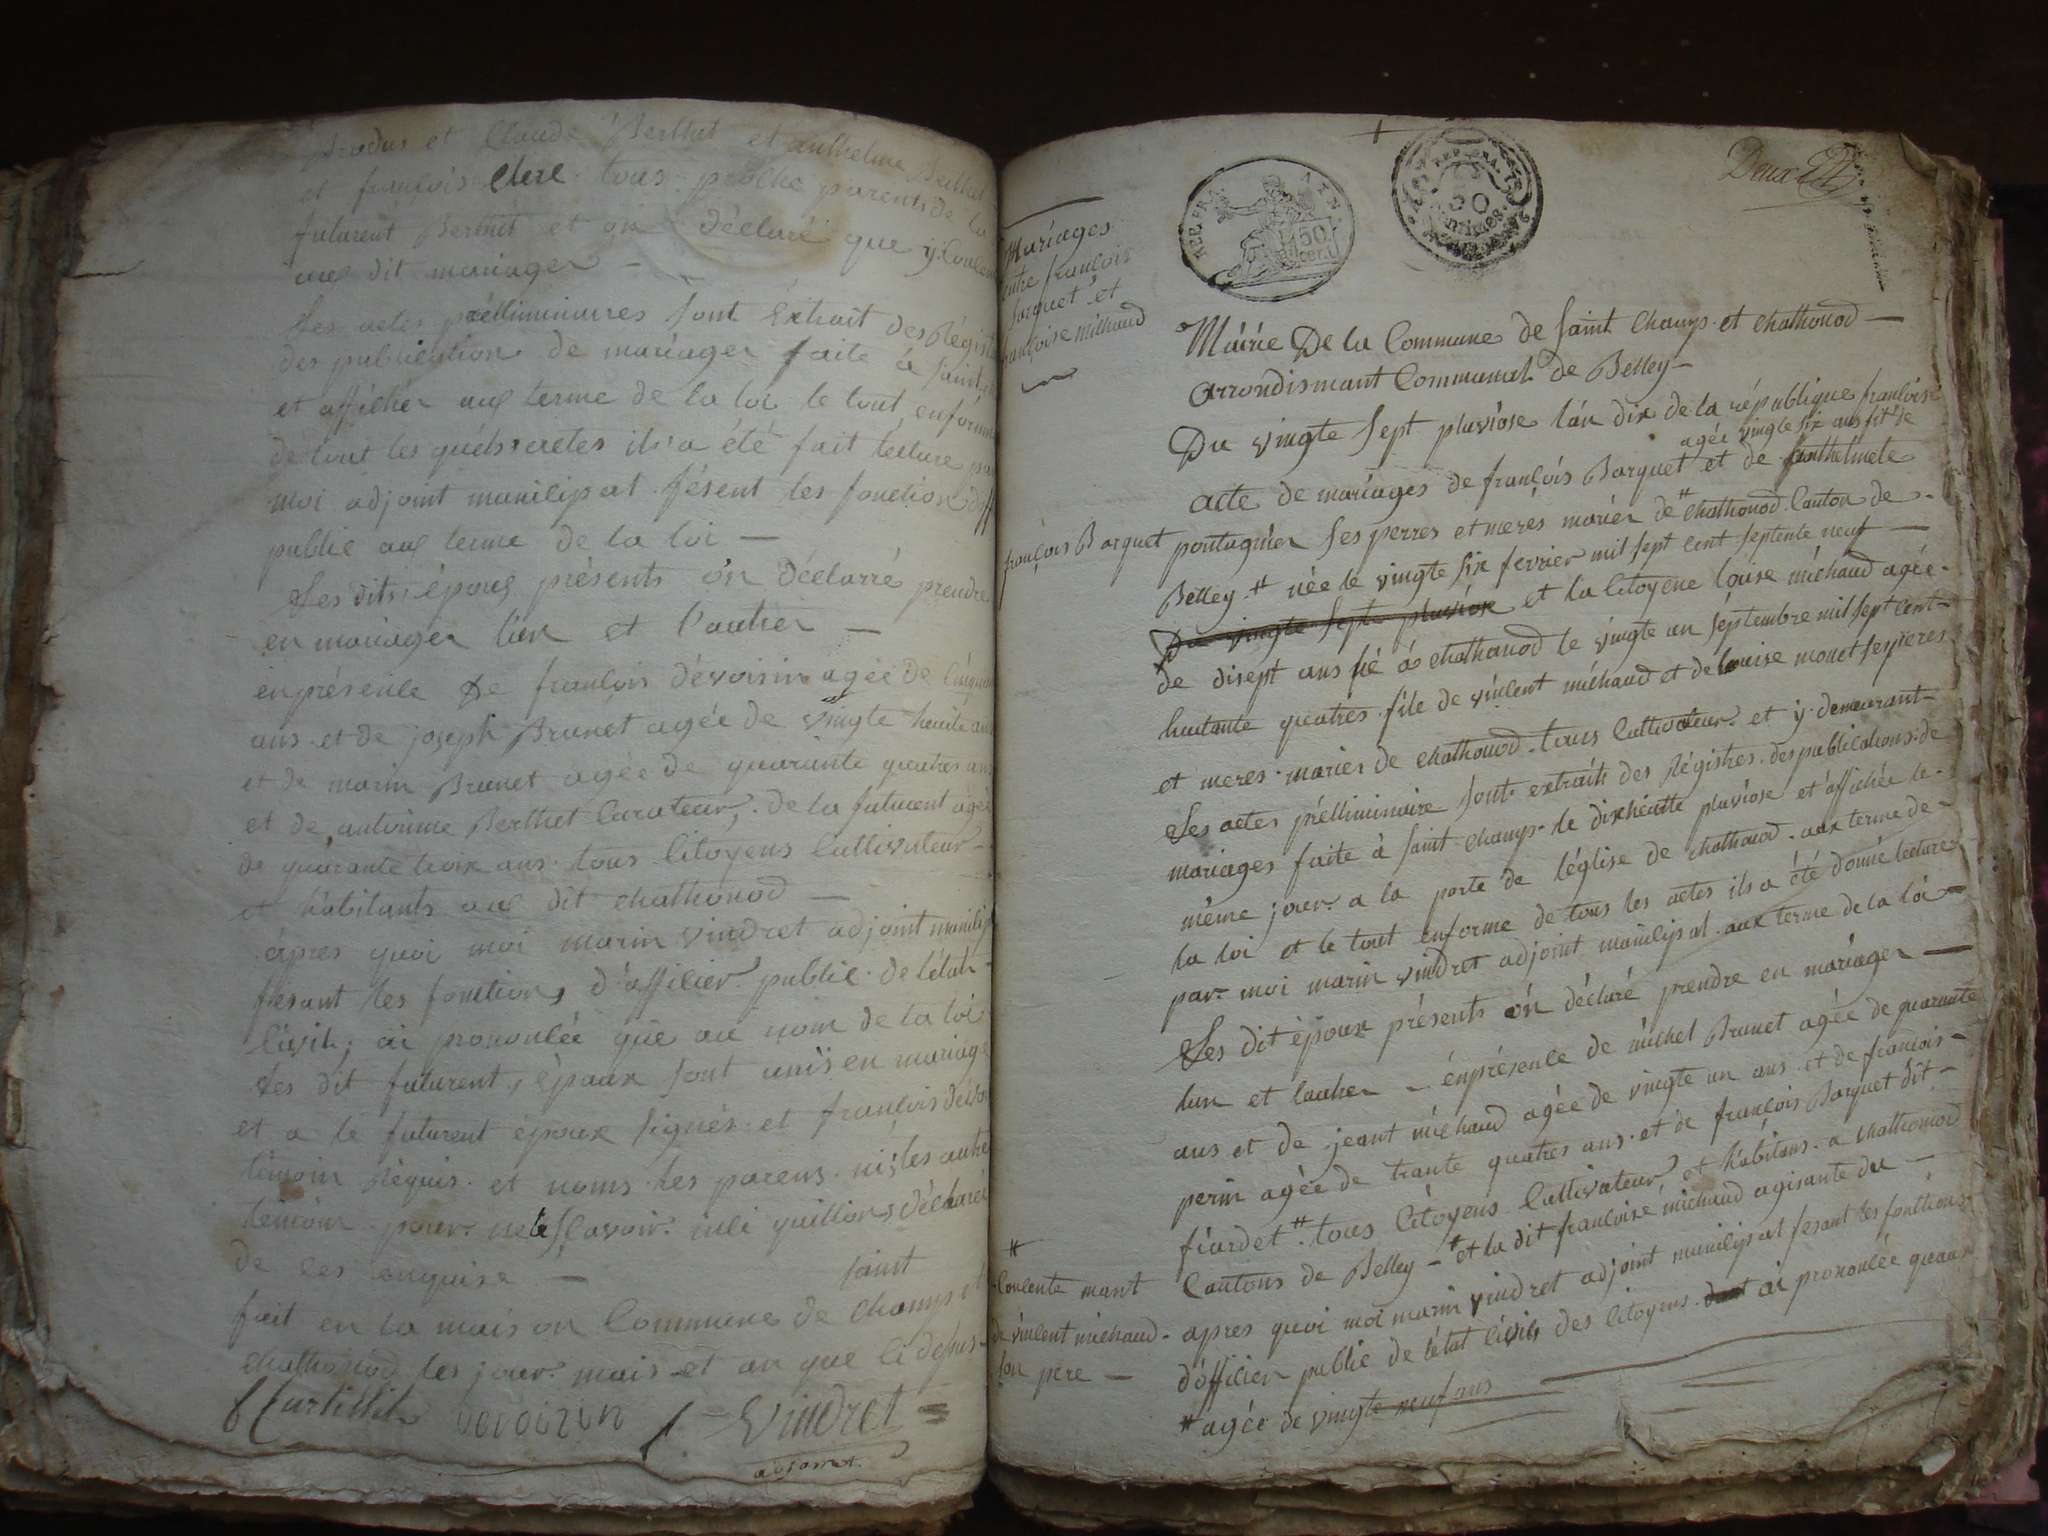 et Claude Berthet et anthelme Berthet
et françois Clerc tous proche parents de la
futurent Berthet et on déclaré que y
aux dit mariager —
Les actes prélliminiures sont Extrait des Régis
des publication de mariager faite à saint
et affichér aux terme de la loi le tout enforme
de tout les quels actes il a été fait lecture par
moi adjoint municipal fésent les fonction d'off
public aux terme de la loi —
Les dits époux présents on Déclarré prendre
en mariager l'un et l'autier —
enprésence De françois dévoisin agée de
ans et de joseph Brunet agée de vingte huite ans
et de marin Brunet agée de quarante quatres ans
et de antoinne Berthet Curateur, de la futurent agée
de quarante troix ans tous Citoyens Cultivateur —
et habitants aux dit chathonod —
àpres quoi moi marin vindret adjoint municip
fesant les fonctions d'officier public de l'état
Civil, ai prononcée que au nom de la loi
Les dit futurent, époux sont unis en mariage
et a le futurent époux signés et françois
témoin Réquis et noms les parens ni les autre
témoin pour ne scavoir déclarée
de ces enquise — saint
fait en la maison Commune de Champs et
chathonod les jour mais et an que Ci depus —
dévoizin Vindret
adjoint
Deux
REP. FRA 50 cen.
REP. FRA. 50 centimes
Mariages
entre françois
Barquet et
françoise michaud
Mairie De la Commune de saint champs et chathonod —
arrondismant Communal de Belley —
Du vingte sept pluviose l'an dix de la république francoise
agée vingte six ans fit de
acte de mariages de françois Barquet et de anthelmete
françois Barquet pontagnier ses perres et meres mariér de # chathonod Canton de
Belley # née le vingte six fevrier mil sept cent septente neuf —
Du vingte septe pluviose et la Citoyene louise michaud agée
de disept ans né à chathonod le vingte un septembre mil sept cent
huitante quatres file de vincent michaud et de louise monet ses peres
et meres mariér de chathonod tous Cultivateur et y demeurant
Les actes prélliminaire sont extraits des Régistres des publications de
mariages faite à saint champs le dixhuitte pluviose et affichée le
même jour a la porte de l'église de chathonod aux terme de
la loi et le tout enforme de tous les actes il a été donné lecture
par moi marin vindret adjoint municipal aux terme de la loi —
Les dit époux présents on déclaré prendre en mariager —
lun et lautier — enprésence de michel Brunet agée de quarante
ans et de jeant michaud agée de vingte un ans et de francois
perin agée de trante quatres ans et de françois Barquet dit
fiardet # tous Citoyens Cultivateur et habitans a chathonod
Cantons de Belley — # et la dit françoise michaud agisante du —
#
Concente mant
de vincent michaud
son pere —
apres quoi moi marin vindret adjoint municipal fesant les fonctions
d'officier public de l'état Civils des Citoyens ai prononcée quaux
# agée de vingte neuf ans